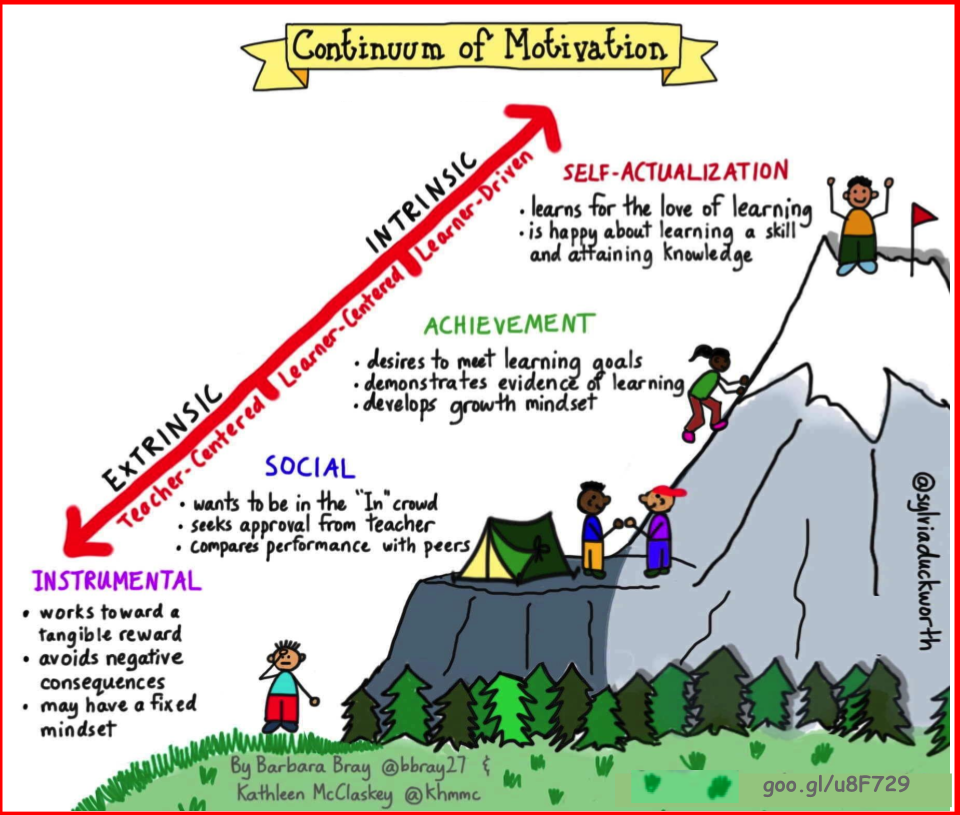 Continuum of Motivation
EXTRINSIC
INTRINSIC
Teacher-Centered
Learner-Centered
Learner-Driven
SELF-ACTUALIZATION
• learns for the love of learning
• is happy about learning a skill
and attaining knowledge
ACHIEVEMENT
• desires to meet learning goals
• demonstrates evidence of learning
• develops growth mindset
SOCIAL
• wants to be in the "In" crowd
• seeks approval from teacher
• compares performance with peers
INSTRUMENTAL
• works toward a
tangible reward
• avoids negative
consequences
• may have a fixed
mindset
@sylviaduckworth
By Barbara Bray @bbray27 &
Kathleen McClaskey @khmmc
goo.gl/u8F729